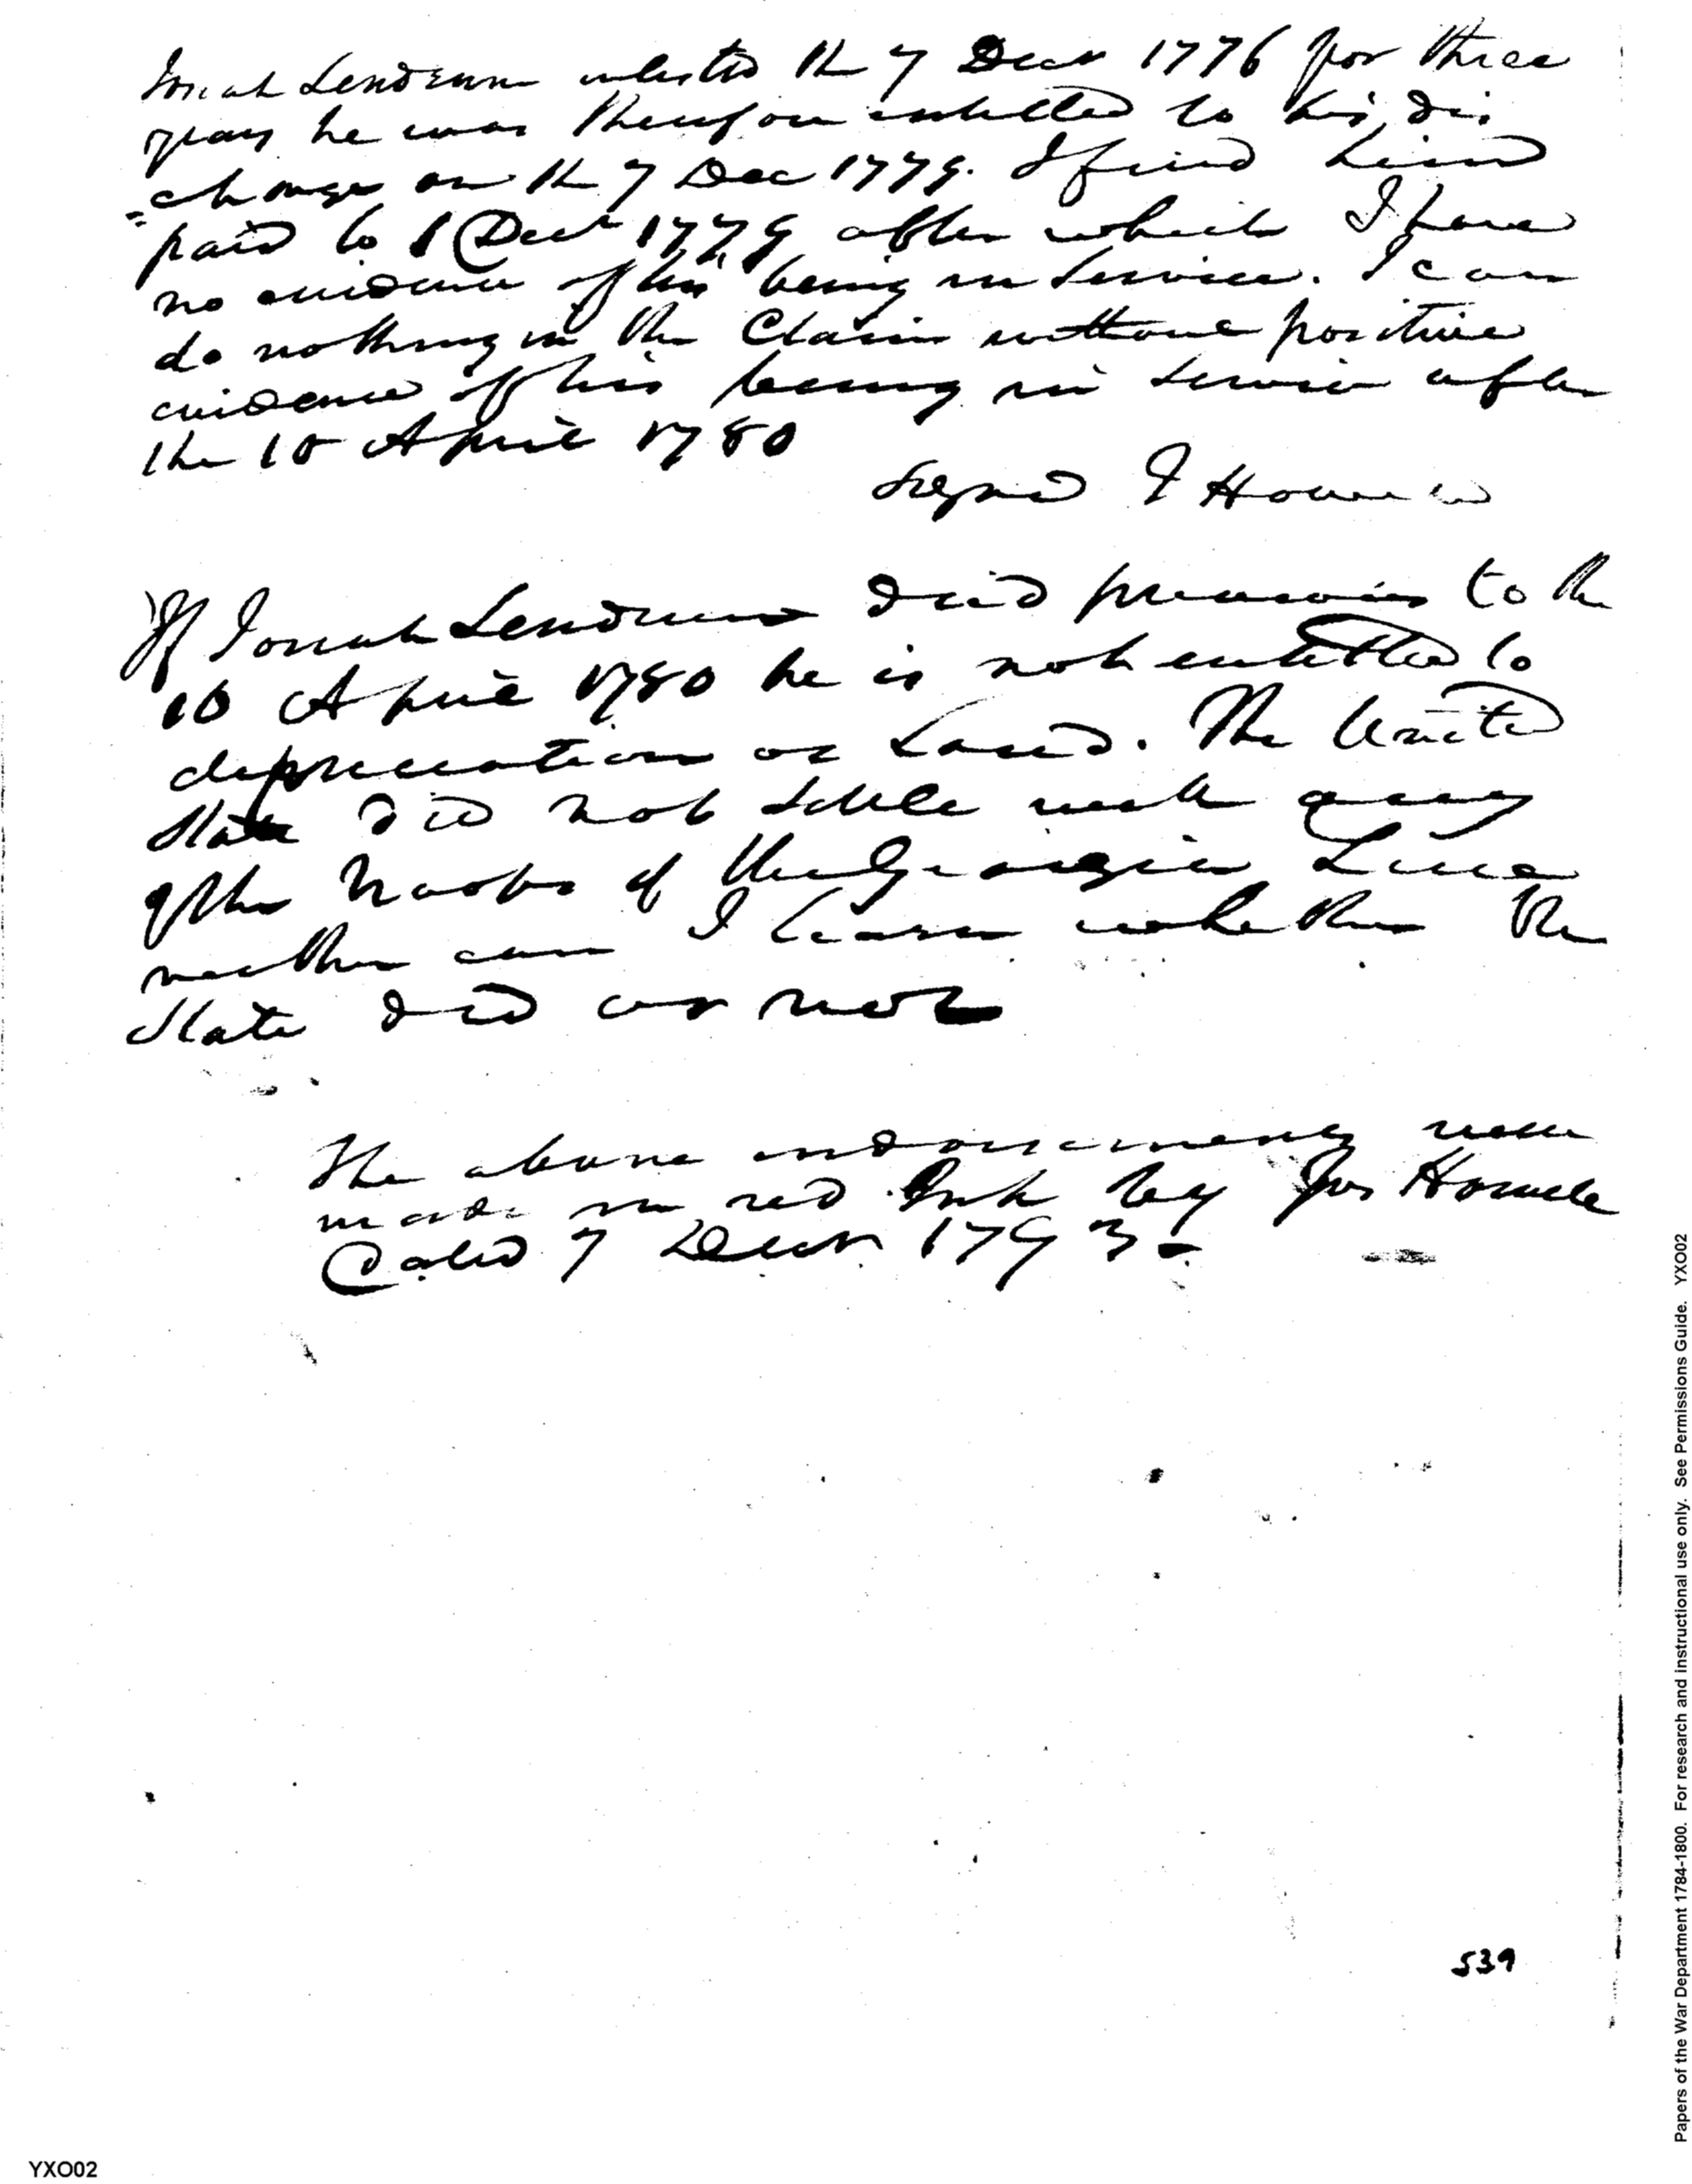 Jonah Lendrum enlisted the 7 Decr 1776 for three
years he was therefore entitled to his dis
=charge on the 7 Dec 1779. I find him
paid to 1 Decr 1779 after which I have
no evidence of his being in Service. I can
do nothing in the Claim without positive
evidence of his being in Service after
the 10 April 1780
Signed J Howell
If Jonah Lendrum died previous to the
10 April 1780 he is not entitled to
depreciation or Land. The United
State did not settle with any
of the Troops of the Georgia Line
neither can I learn whether the
State did or not
The above endorsements were
made in red Ink by Jos Howell
Dated 7 Decr 1793-
539
Papers of the War Department 1784-1800. For research and instructional use only. See Permissions Guide. YXO02
YXO02